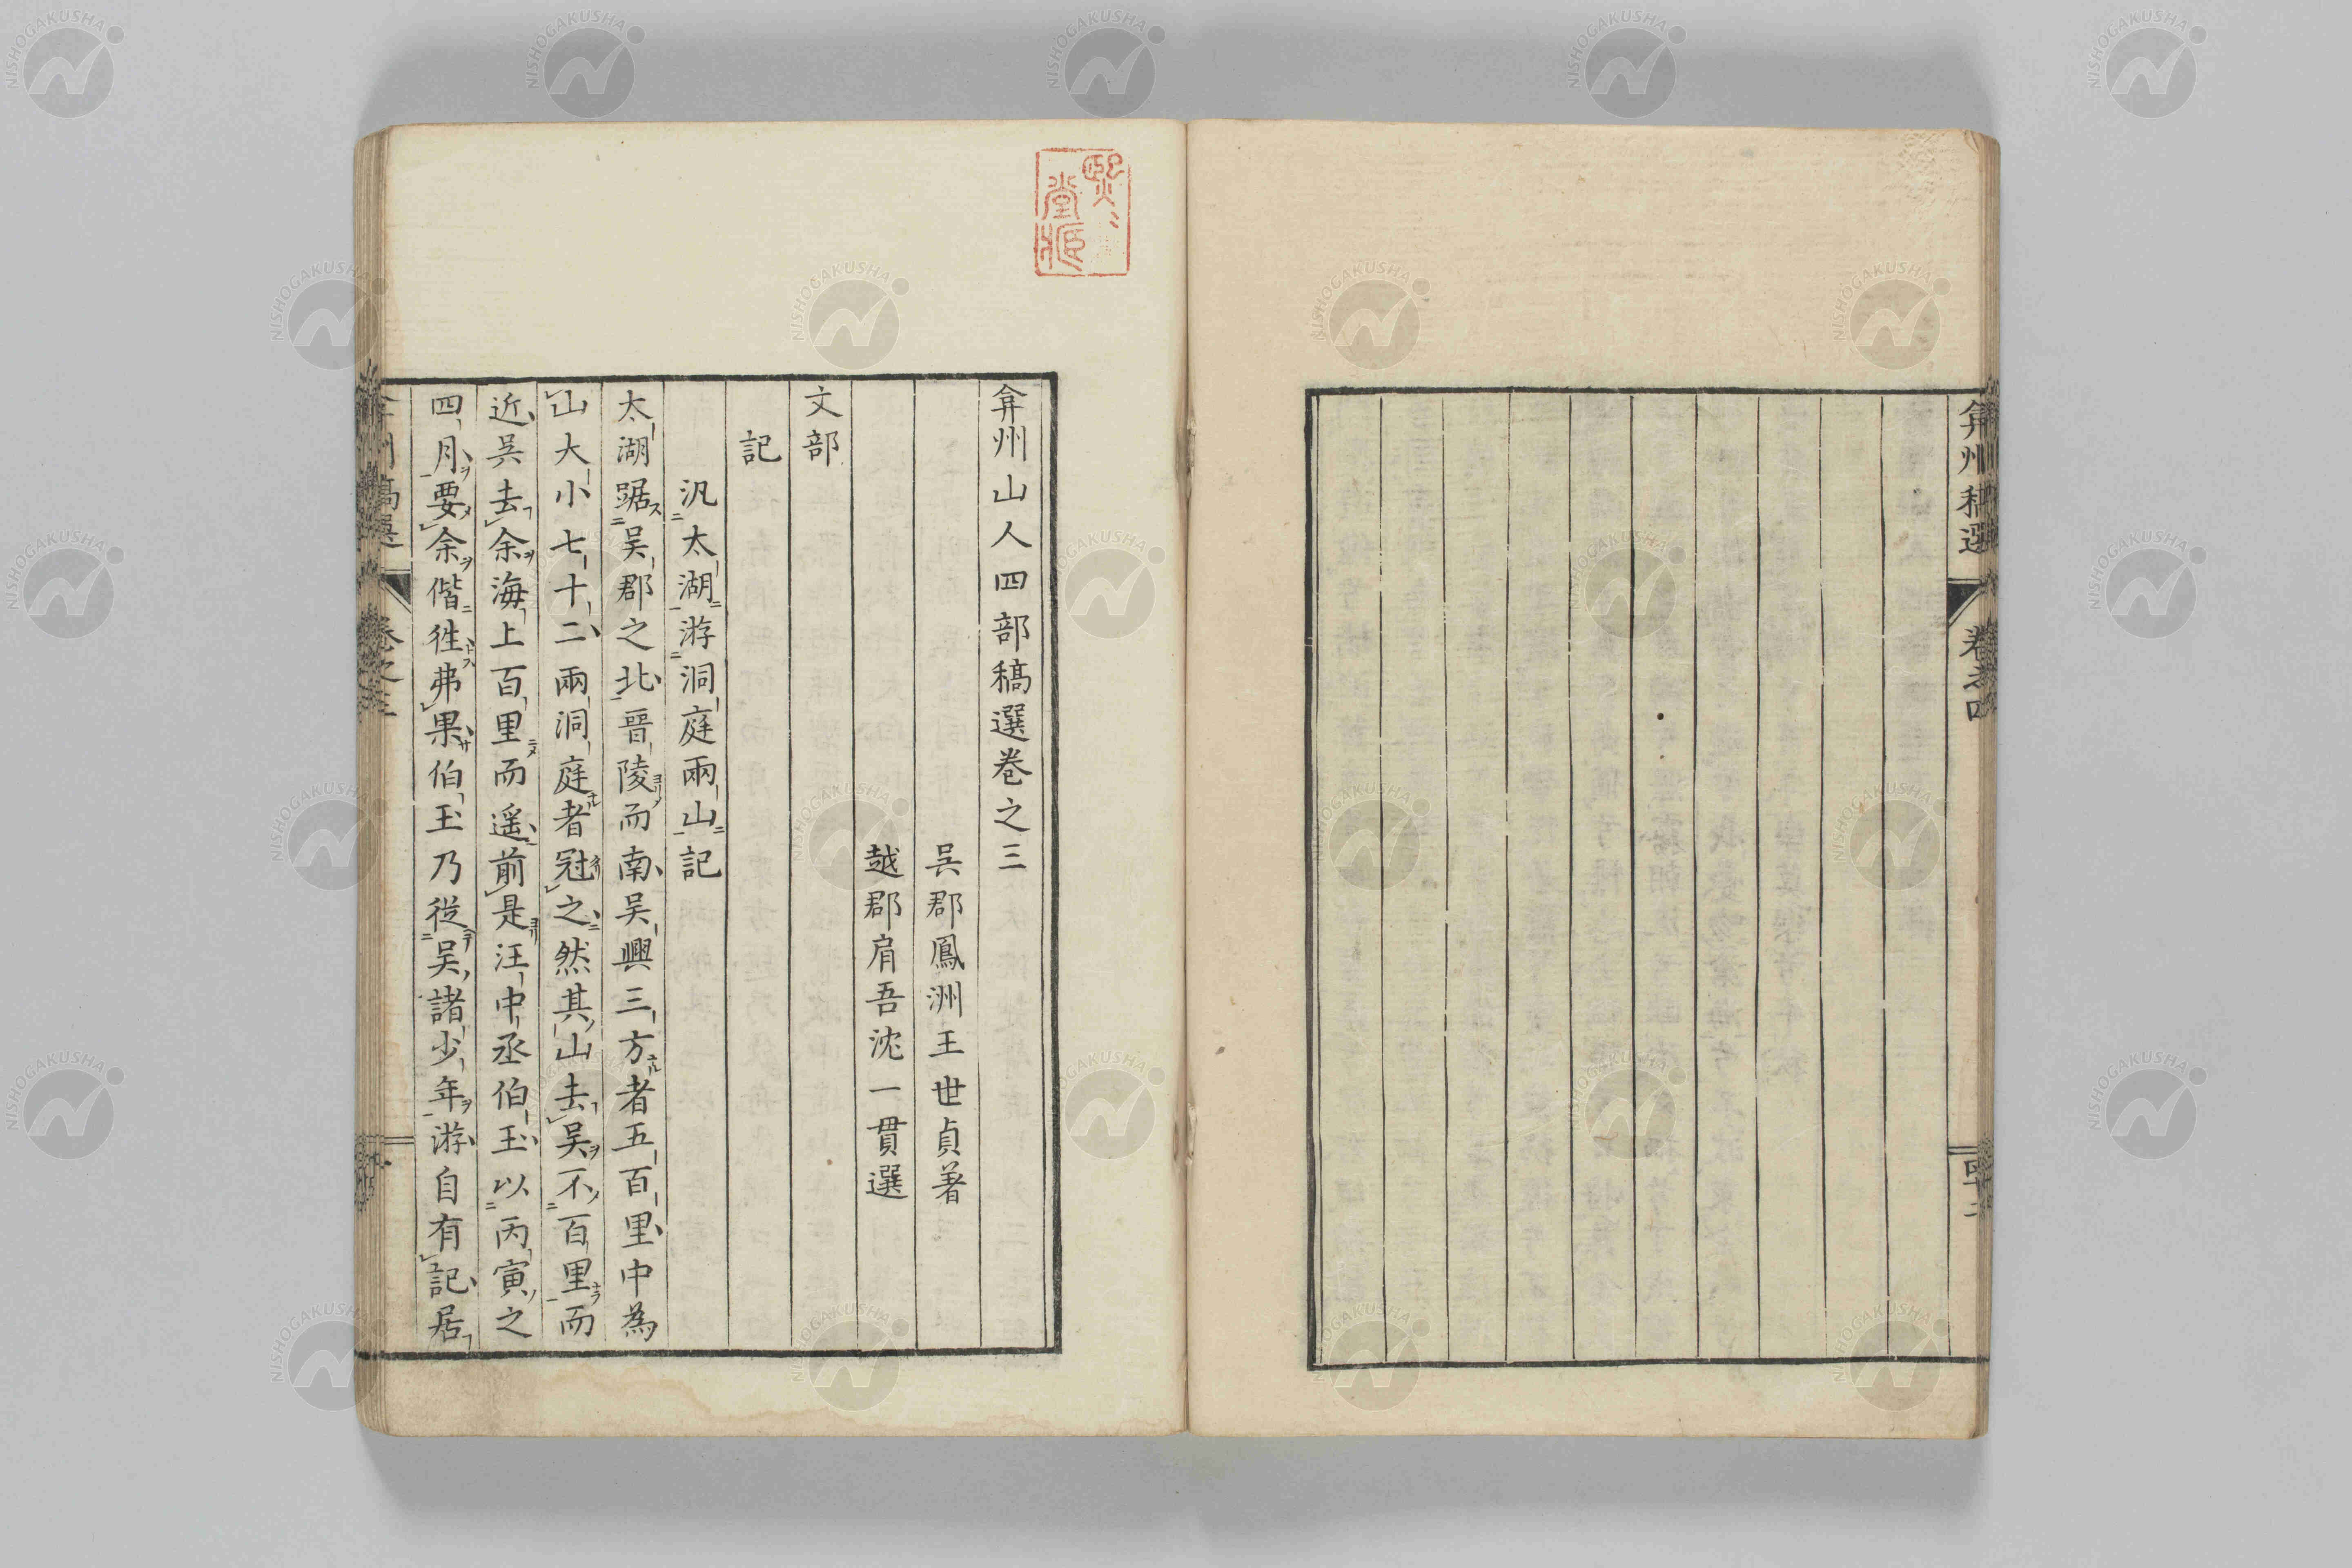 弇州稿選
卷之四
弇州山人四部稿選卷之三
吳郡鳳洲王世貞著
越郡肩吾沈一貫選
文部
記
汎太湖游洞庭兩山記
太湖踞吴郡之北晉陵而南吴興三方者五百里中為
山大小七十二兩洞庭者冠之然其山去吴不百里而
近吴去余海上百里而遥前是汪中丞伯玉以丙寅之
四月要余偕徃弗果伯玉乃從吴諸少年游自有記居
卷之三
NISHOGAKUSHA